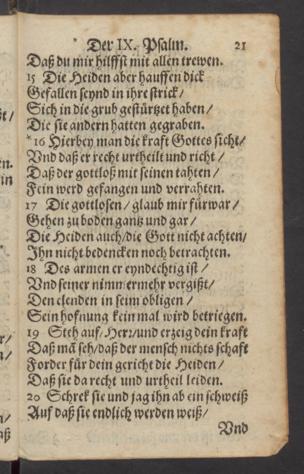 Der IX. Psalm. 21
Daß du mir hilffst mit allen trewen.
15 Die Heiden aber hauffen dick
Gefallen seynd in ihre strick/
Sich in die grub gestürtzet haben/
Die sie andern hatten gegraben.
*16 Hierbey man die kraft Gottes sicht/
Vnd daß er recht urtheilt und richt/
Daß der gottloß mit seinen tahten/
Fein werd gefangen und verrahten.
17 Die gottlosen/ glaub mir fürwar/
Gehen zu boden gantz und gar/
Die Heiden auch/die Gott nicht achten/
Ihn nicht bedencken noch betrachten.
18 Des armen er eyndechtig ist/
Vnd seiner nimmermehr vergißt/
Den elenden in seim obligen/
Sein hofnung kein mal wird betriegen.
19 Steh auf/Herr/und erzeig dein kraft
Daß mã seh/daß der mensch nichts schaft
Forder für dein gericht die Heiden/
Daß sie da recht und urtheil leiden.
20 Schrek sie und jag ihn ab ein schweiß
Auf daß sie endlich werden weiß/
Vnd